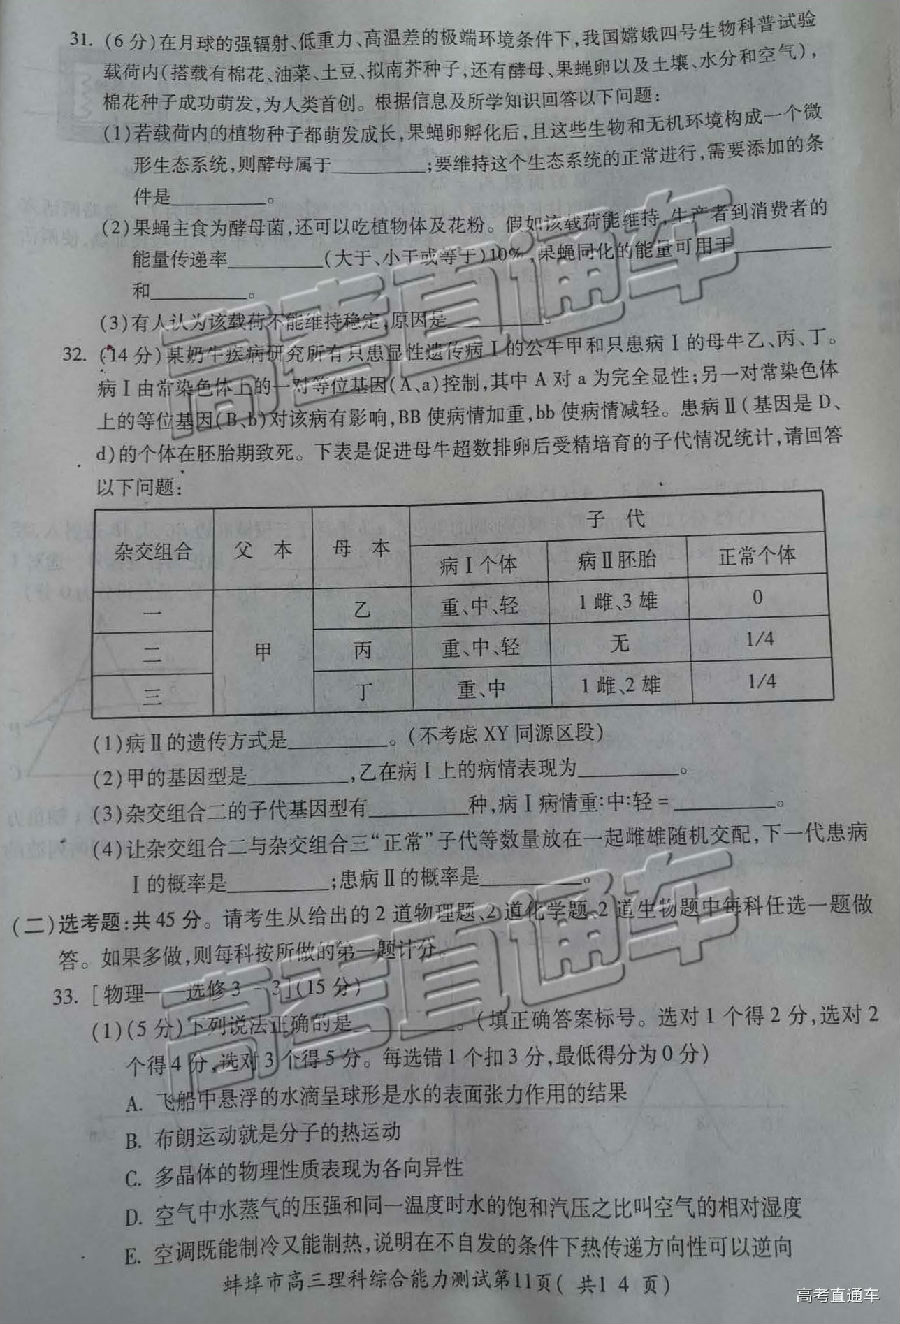 31. (6分)在月球的强辐射、低重力、高温差的极端环境条件下,我国嫦娥四号生物科普试验
载荷内(搭载有棉花、油菜、土豆、拟南芥种子,还有酵母、果蝇卵以及土壤、水分和空气),
棉花种子成功萌发,为人类首创。根据信息及所学知识回答以下问题:
(1)若载荷内的植物种子都萌发成长,果蝇卵孵化后,且这些生物和无机环境构成一个微
形生态系统,则酵母属于________;要维持这个生态系统的正常进行,需要添加的条
件是________。
(2)果蝇主食为酵母菌,还可以吃植物体及花粉。假如该载荷能维持,生产者到消费者的
能量传递率________(大于、小于或等于)10%,果蝇同化的能量可用于________
和________。
(3)有人认为该载荷不能维持稳定,原因是________。
32. (14分)某奶牛疾病研究所有只患显性遗传病Ⅰ的公牛甲和只患病Ⅰ的母牛乙、丙、丁。
病Ⅰ由常染色体上的一对等位基因(A、a)控制,其中A对a为完全显性;另一对常染色体
上的等位基因(B、b)对该病有影响,BB使病情加重,bb使病情减轻。患病Ⅱ(基因是D、
d)的个体在胚胎期致死。下表是促进母牛超数排卵后受精培育的子代情况统计,请回答
以下问题:
杂交组合 父本 母本 子代
病Ⅰ个体 病Ⅱ胚胎 正常个体
一 甲 乙 重、中、轻 1雌、3雄 0
二 丙 重、中、轻 无 1/4
三 丁 重、中 1雌、2雄 1/4
(1)病Ⅱ的遗传方式是________。(不考虑XY同源区段)
(2)甲的基因型是________,乙在病Ⅰ上的病情表现为________。
(3)杂交组合二的子代基因型有________种,病Ⅰ病情重∶中∶轻=________。
(4)让杂交组合二与杂交组合三“正常”子代等数量放在一起雌雄随机交配,下一代患病
Ⅰ的概率是________;患病Ⅱ的概率是________。
(二)选考题:共45分。请考生从给出的2道物理题、2道化学题、2道生物题中每科任选一题做
答。如果多做,则每科按所做的第一题计分。
33. [物理——选修3-3](15分)
(1)(5分)下列说法正确的是________。(填正确答案标号。选对1个得2分,选对2
个得4分,选对3个得5分。每选错1个扣3分,最低得分为0分)
A. 飞船中悬浮的水滴呈球形是水的表面张力作用的结果
B. 布朗运动就是分子的热运动
C. 多晶体的物理性质表现为各向异性
D. 空气中水蒸气的压强和同一温度时水的饱和汽压之比叫空气的相对湿度
E. 空调既能制冷又能制热,说明在不自发的条件下热传递方向性可以逆向
蚌埠市高三理科综合能力测试第11页(共14页)
高考直通车
高考直通车
高考直通车